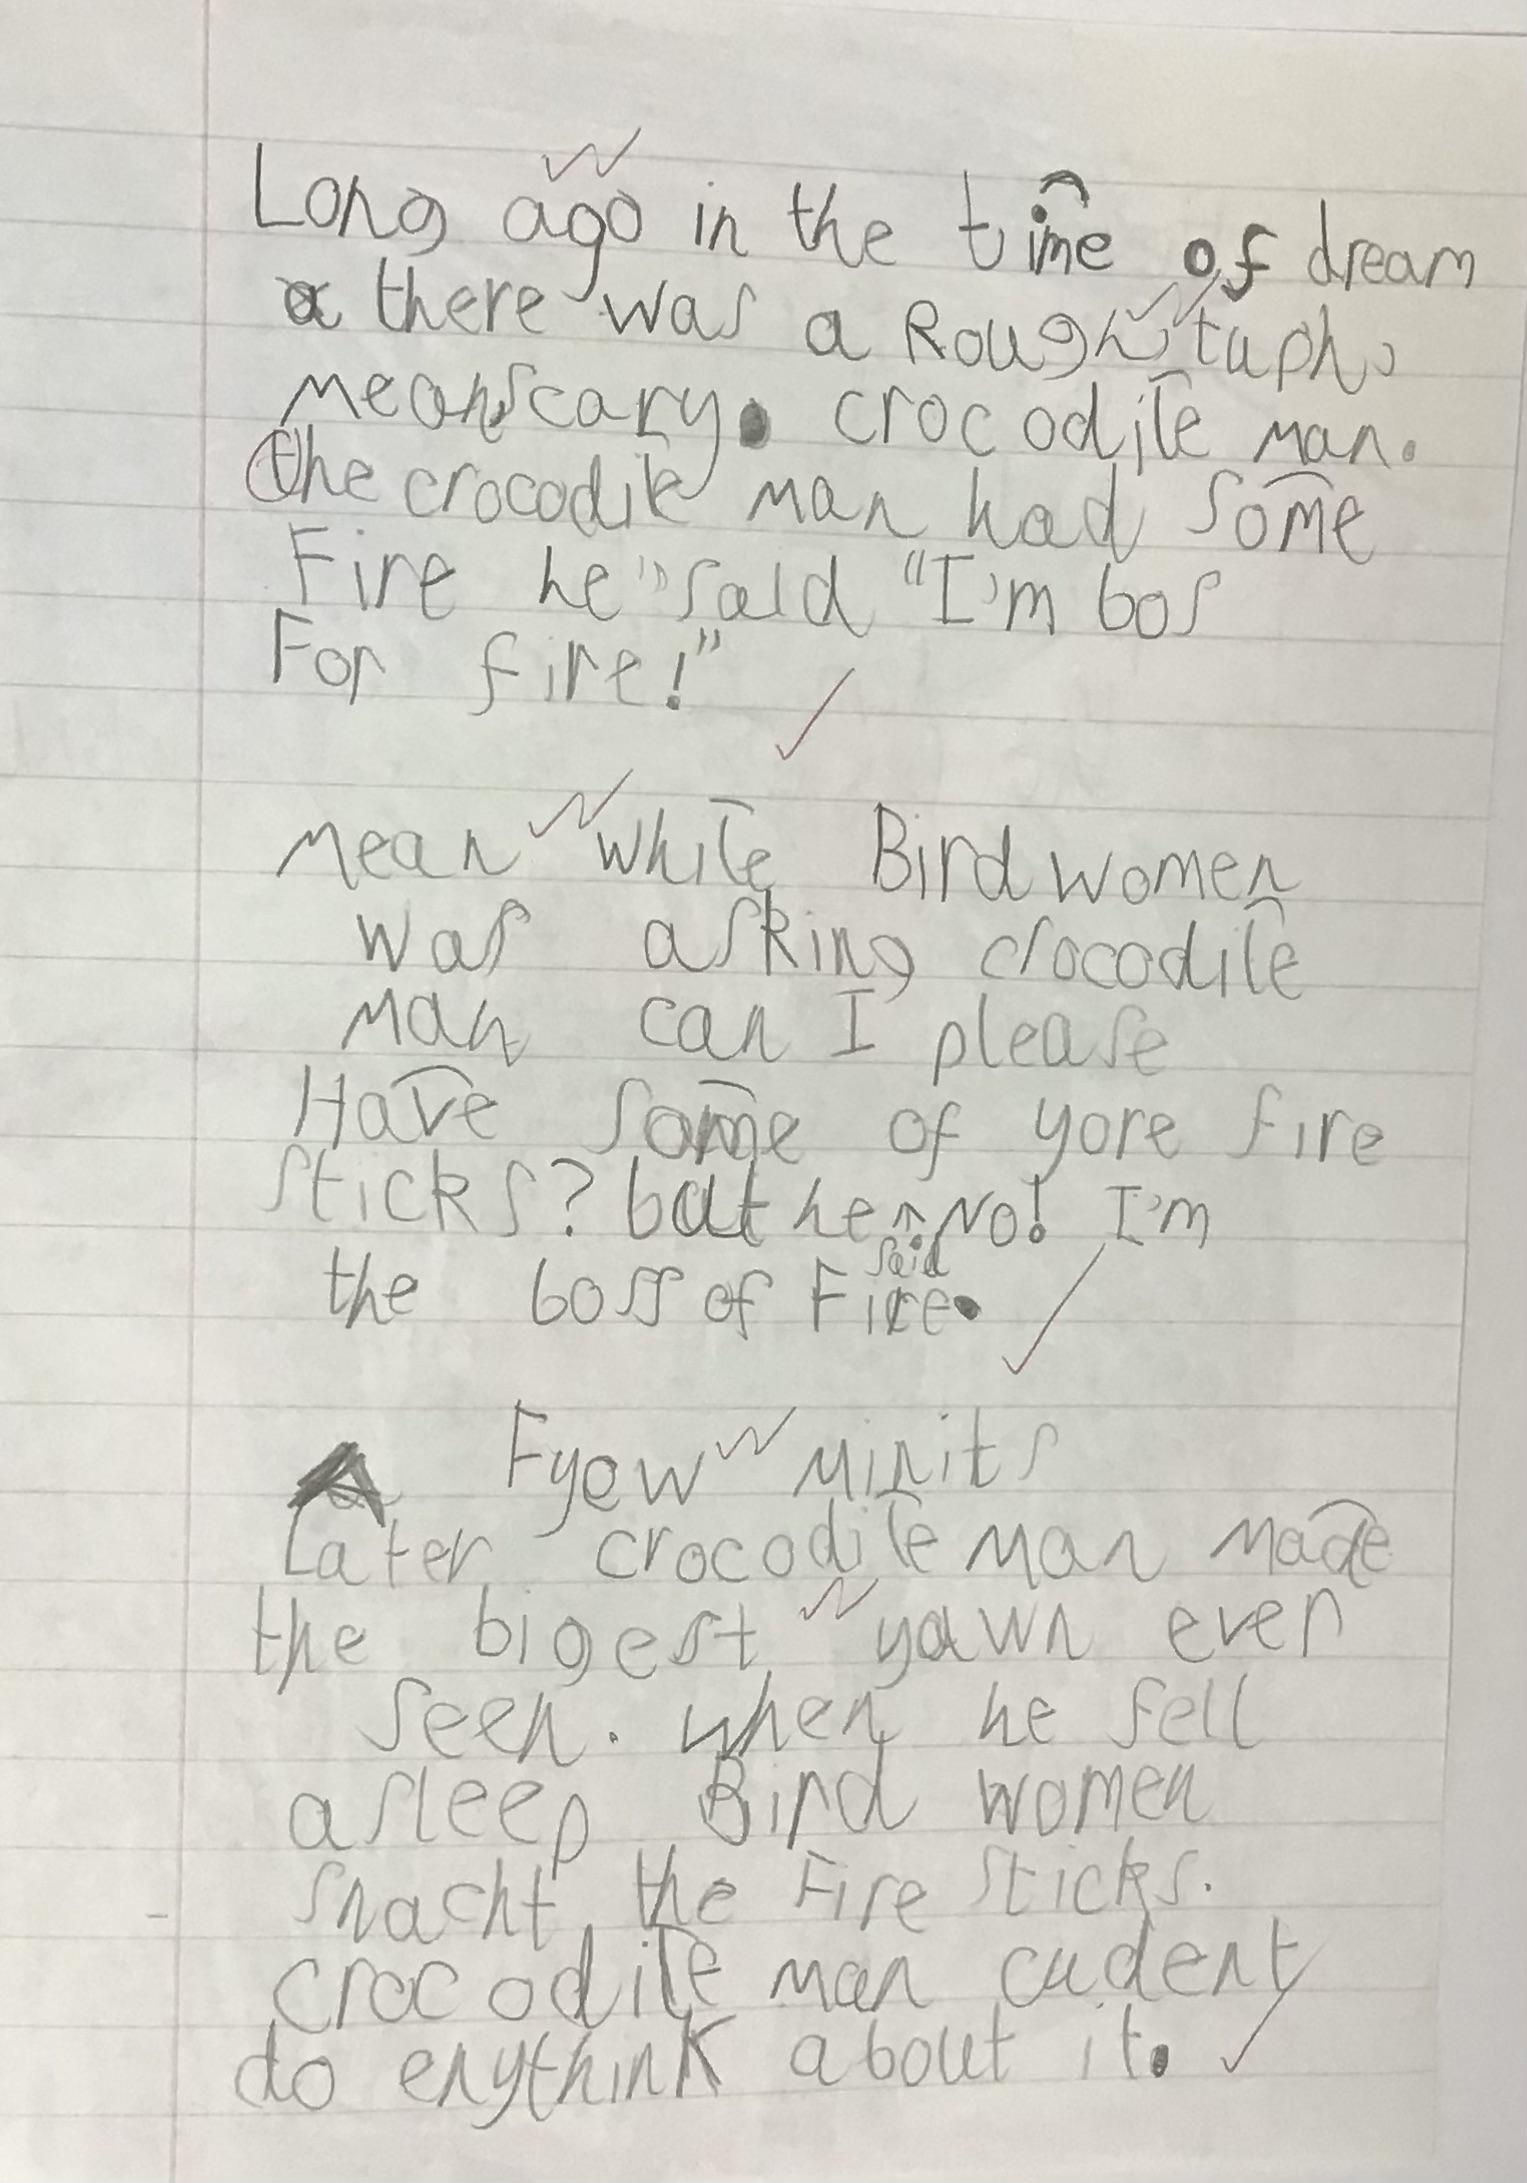 Long ago in the time of dream
there was a Rough, tuph,
mean, scary. crocodile man.
the crocodile man had some
Fire he" said "I'm bos
For fire!"
Mean while Bird women
was asking crocodile
man can I please
Have some of yore fire
sticks? but he ^ No! I'm
said
the boss of Fire.
A Fyew minits
Later crocodile man made
the bigest yawn ever
seen. when he fell
asleep Bird women
snacht the Fire sticks.
crocodile man cudent
do enythink about it.